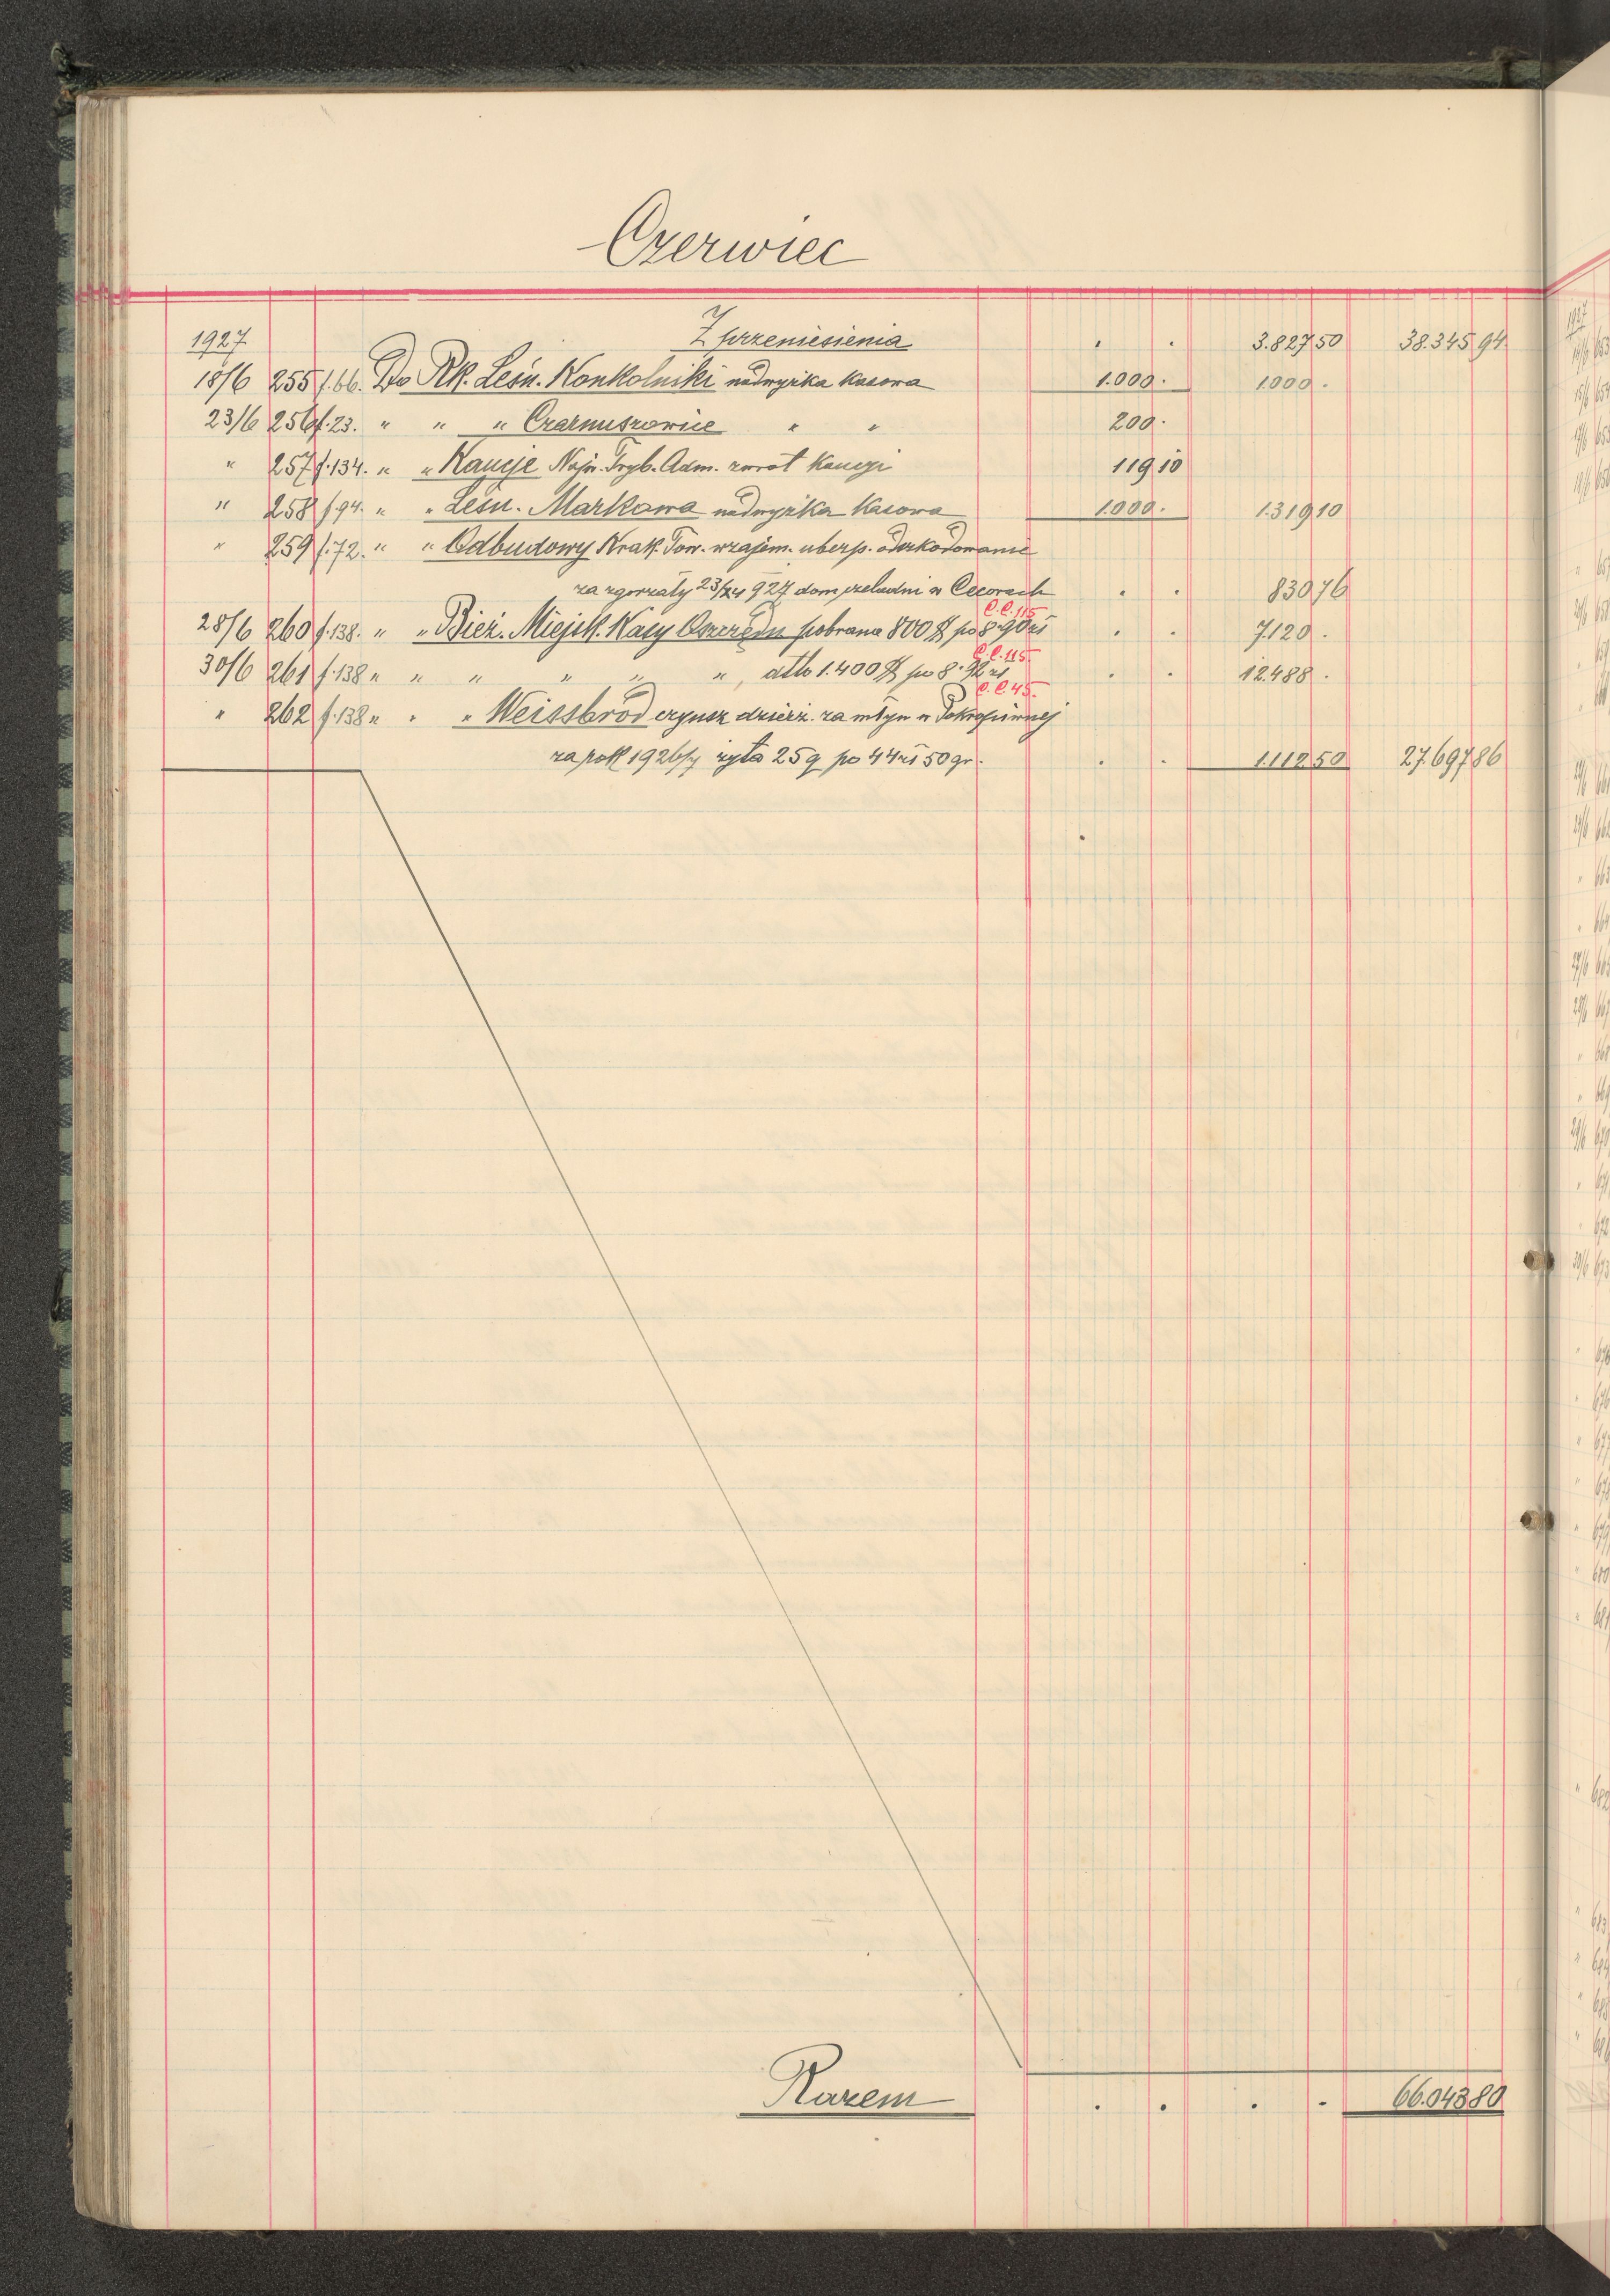 Czerwiec
1927 Z przeniesienia . . 3.827 50 38.345 94
18/6 255 f.66. Do Rk. Leśn. Konkolniki nadwyżka kasowa 1.000 . 1.000 .
23/6 256 f.23. " " " Czarnuszowice " " 200 .
" 257 f.134. " " Kaucje Najw. Tryb. Adm. zwrot kaucji 119 10
" 258 f.94. " " Leśn. Markowa nadwyżka kasowa 1.000 . 1.319 10
" 259 f.72. " " Odbudowy Krak. Tow. wzajem. ubezp. odszkodowanie
za zgorzały 23/24 927 dom czeladni w Cecorach . . 830 76
C.C. 115
28/6 260 f.138. " " Bież. Miejsk. Kasy Oszczędn pobrana 800 $ po 8.90 zł . . 7.120 .
C.C. 115.
30/6 261 f.138 " " " " " " , dtto 1.400 $ po 8.92 zł . . 12.488 .
C.C. 45.
" 262 f.138 " " " Weissbrod czynsz dzierż. za młyn w Pokropiwnej
za rok 1926/7 żyta 25 q po 44 zł 50 gr. . . 1.112 50 27.697 86
Razem . . . . 66.043 80